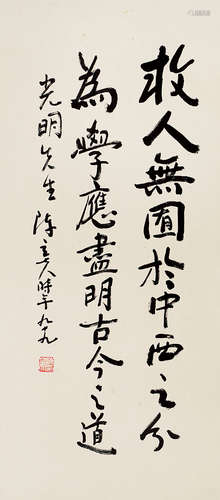 救人無囿於中西之分
為學應盡明古今之道
光明先生 陈立夫 時年九九